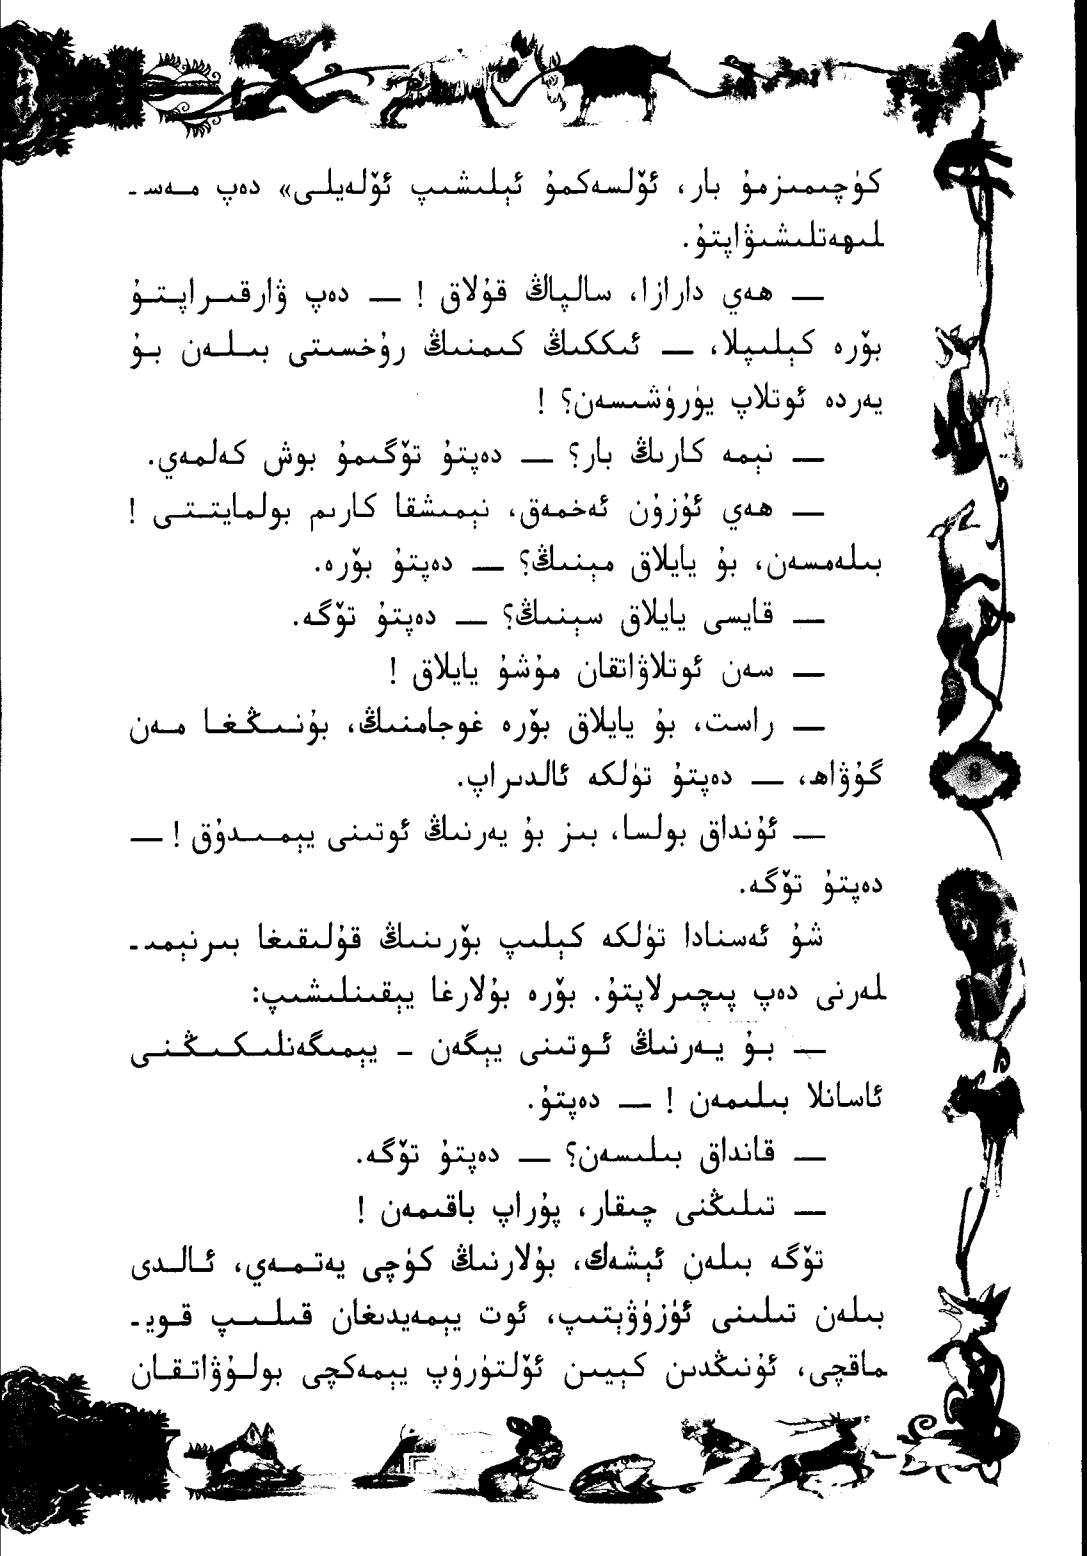 كۈچىمىزمۇ بار، ئۆلسەكمۇ ئېلىشىپ ئۆلەيلى» دەپ مەسـ
لىھەتلىشىۋاپتۇ.
— ھەي دارازا، سالپاڭ قۇلاق ! — دەپ ۋارقىراپتۇ
بۆرە كېلىپلا، — ئىككىڭ كىمنىڭ رۇخسىتى بىلەن بۇ
يەردە ئوتلاپ يۈرۈشىسەن؟ !
— نېمە كارىڭ بار؟ — دەپتۇ تۆگىمۇ بوش كەلمەي.
— ھەي ئۇزۇن ئەخمەق، نېمىشقا كارىم بولمايتتى !
بىلەمسەن، بۇ يايلاق مېنىڭ؟ — دەپتۇ بۆرە.
— قايسى يايلاق سېنىڭ؟ — دەپتۇ تۆگە.
— سەن ئوتلاۋاتقان مۇشۇ يايلاق !
— راست، بۇ يايلاق بۆرە غوجامنىڭ، بۇنىڭغا مەن
گۇۋاھ، — دەپتۇ تۈلكە ئالدىراپ.
— ئۇنداق بولسا، بىز بۇ يەرنىڭ ئوتىنى يېمىدۇق ! —
دەپتۇ تۆگە.
شۇ ئەسنادا تۈلكە كېلىپ بۆرىنىڭ قۇلىقىغا بىرنېمىـ
لەرنى دەپ پىچىرلاپتۇ. بۆرە بۇلارغا يېقىنلىشىپ:
— بۇ يەرنىڭ ئوتىنى يېگەن - يېمىگەنلىكىڭنى
ئاسانلا بىلىمەن ! — دەپتۇ.
— قانداق بىلىسەن؟ — دەپتۇ تۆگە.
— تىلىڭنى چىقار، پۇراپ باقىمەن !
تۆگە بىلەن ئېشەك، بۇلارنىڭ كۈچى يەتمەي، ئالدى
بىلەن تىلىنى ئۈزۈۋېتىپ، ئوت يېمەيدىغان قىلىپ قويـ
ماقچى، ئۇنىڭدىن كېيىن ئۆلتۈرۈپ يېمەكچى بولۇۋاتقان
8